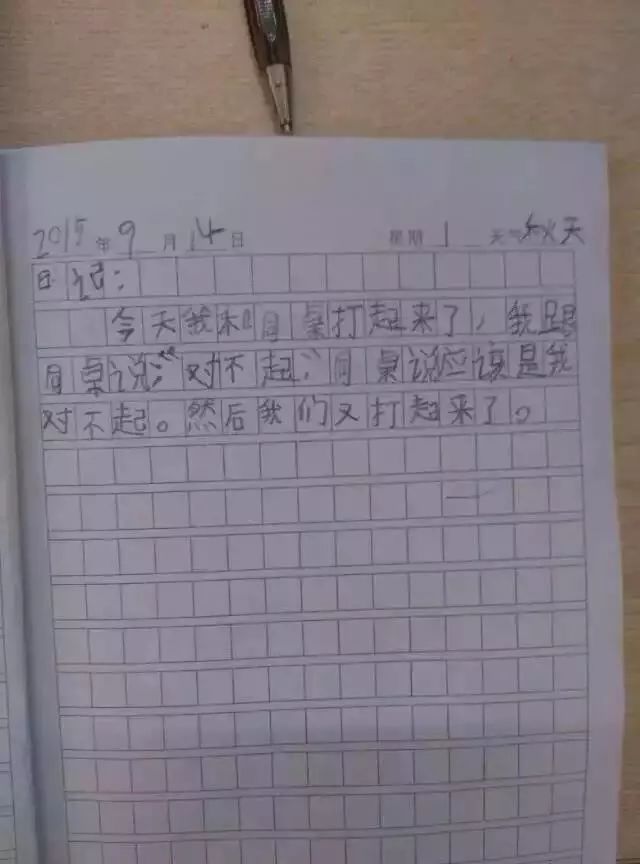 2015年9月14日 星期1 天气秋天
日记：
今天我和同桌打起来了，我跟
同桌说：“对不起”同桌说应该是我
对不起。然后我们又打起来了。